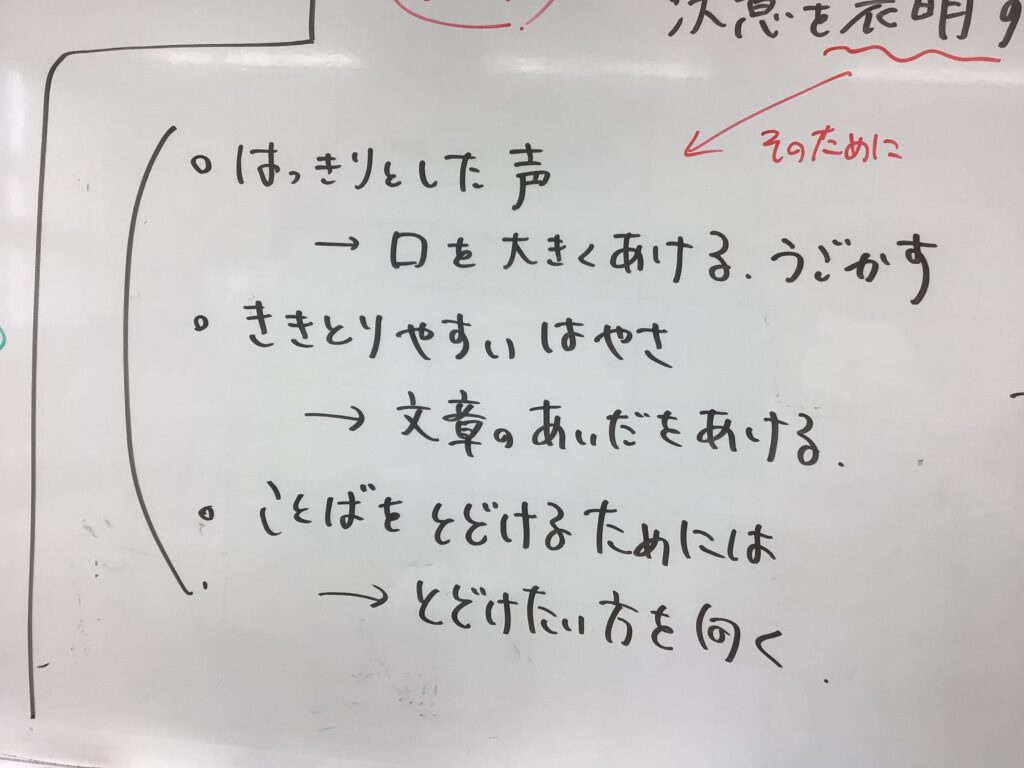 決意を表明す
そのために
。はっきりとした声
→ 口を大きくあける、うごかす
。ききとりやすいはやさ
→ 文章のあいだをあける.
。ことばをとどけるためには
→ とどけたい方を向く.